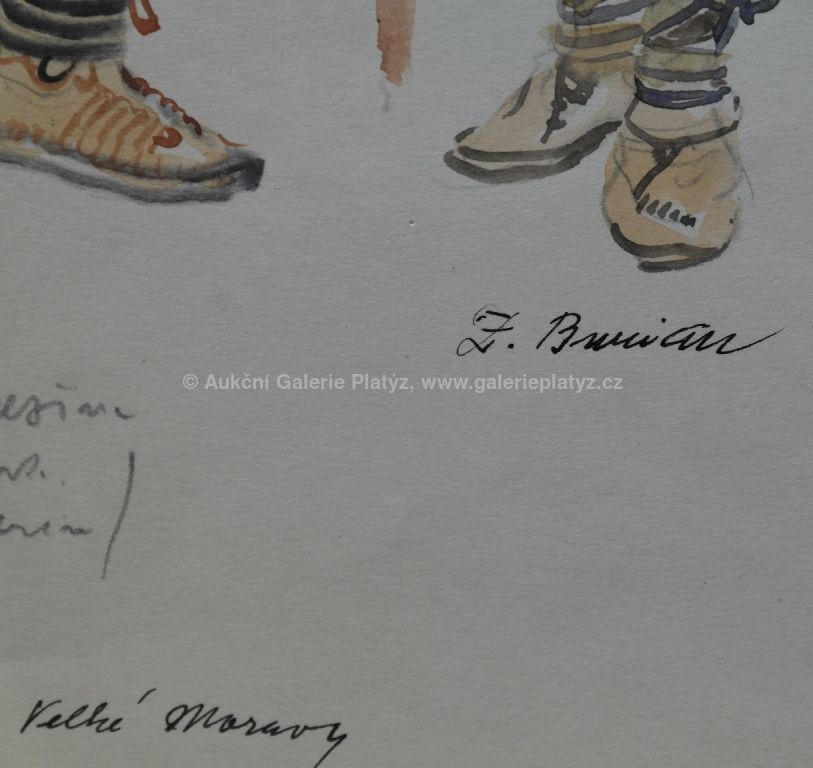 Z. Burian
© Aukční Galerie Platýz, www.galerieplatyz.cz
Velké Moravy